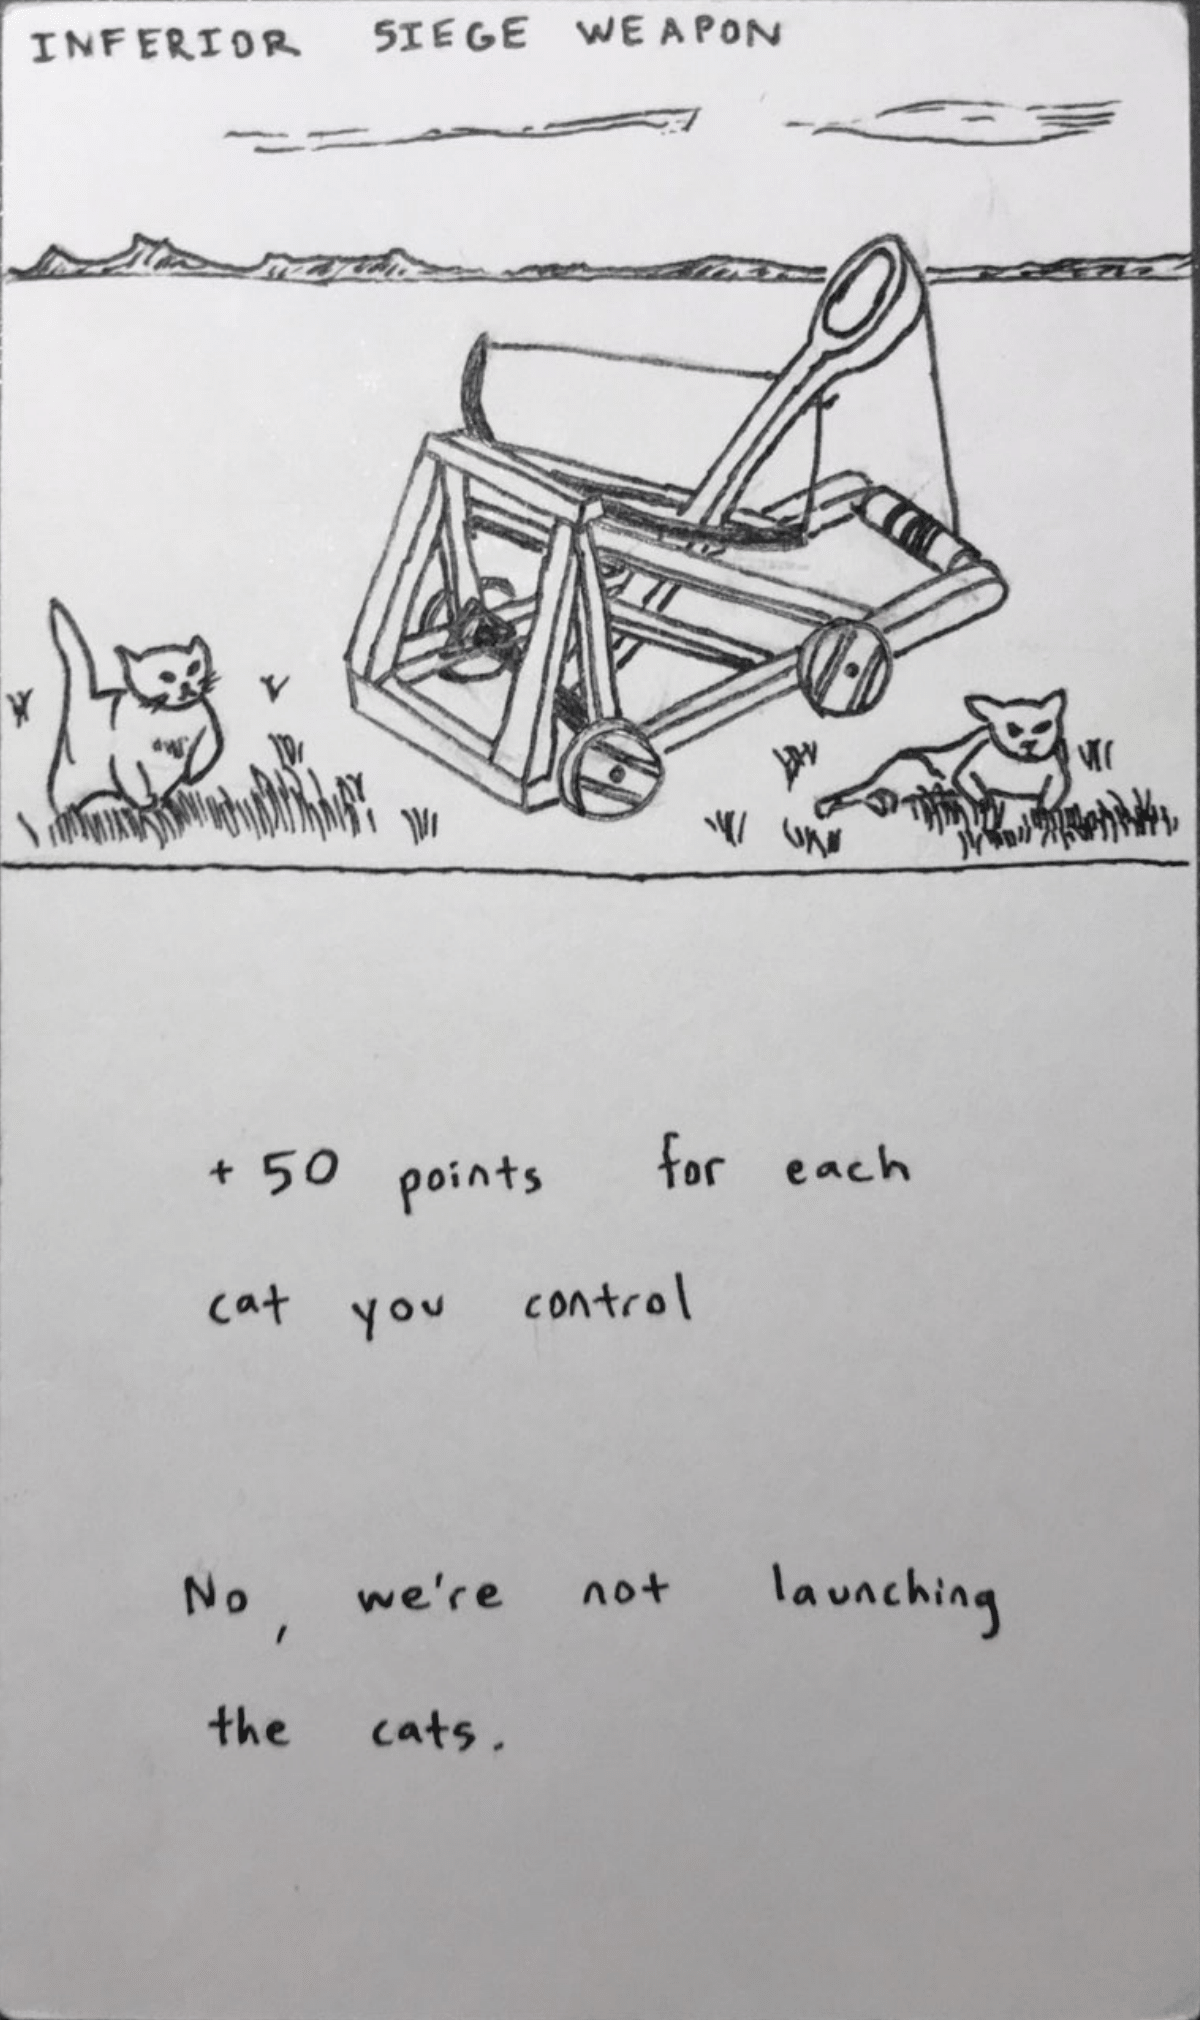 INFERIOR SIEGE WEAPON
+50 points for each
cat you control
No, we're not launching
the cats.